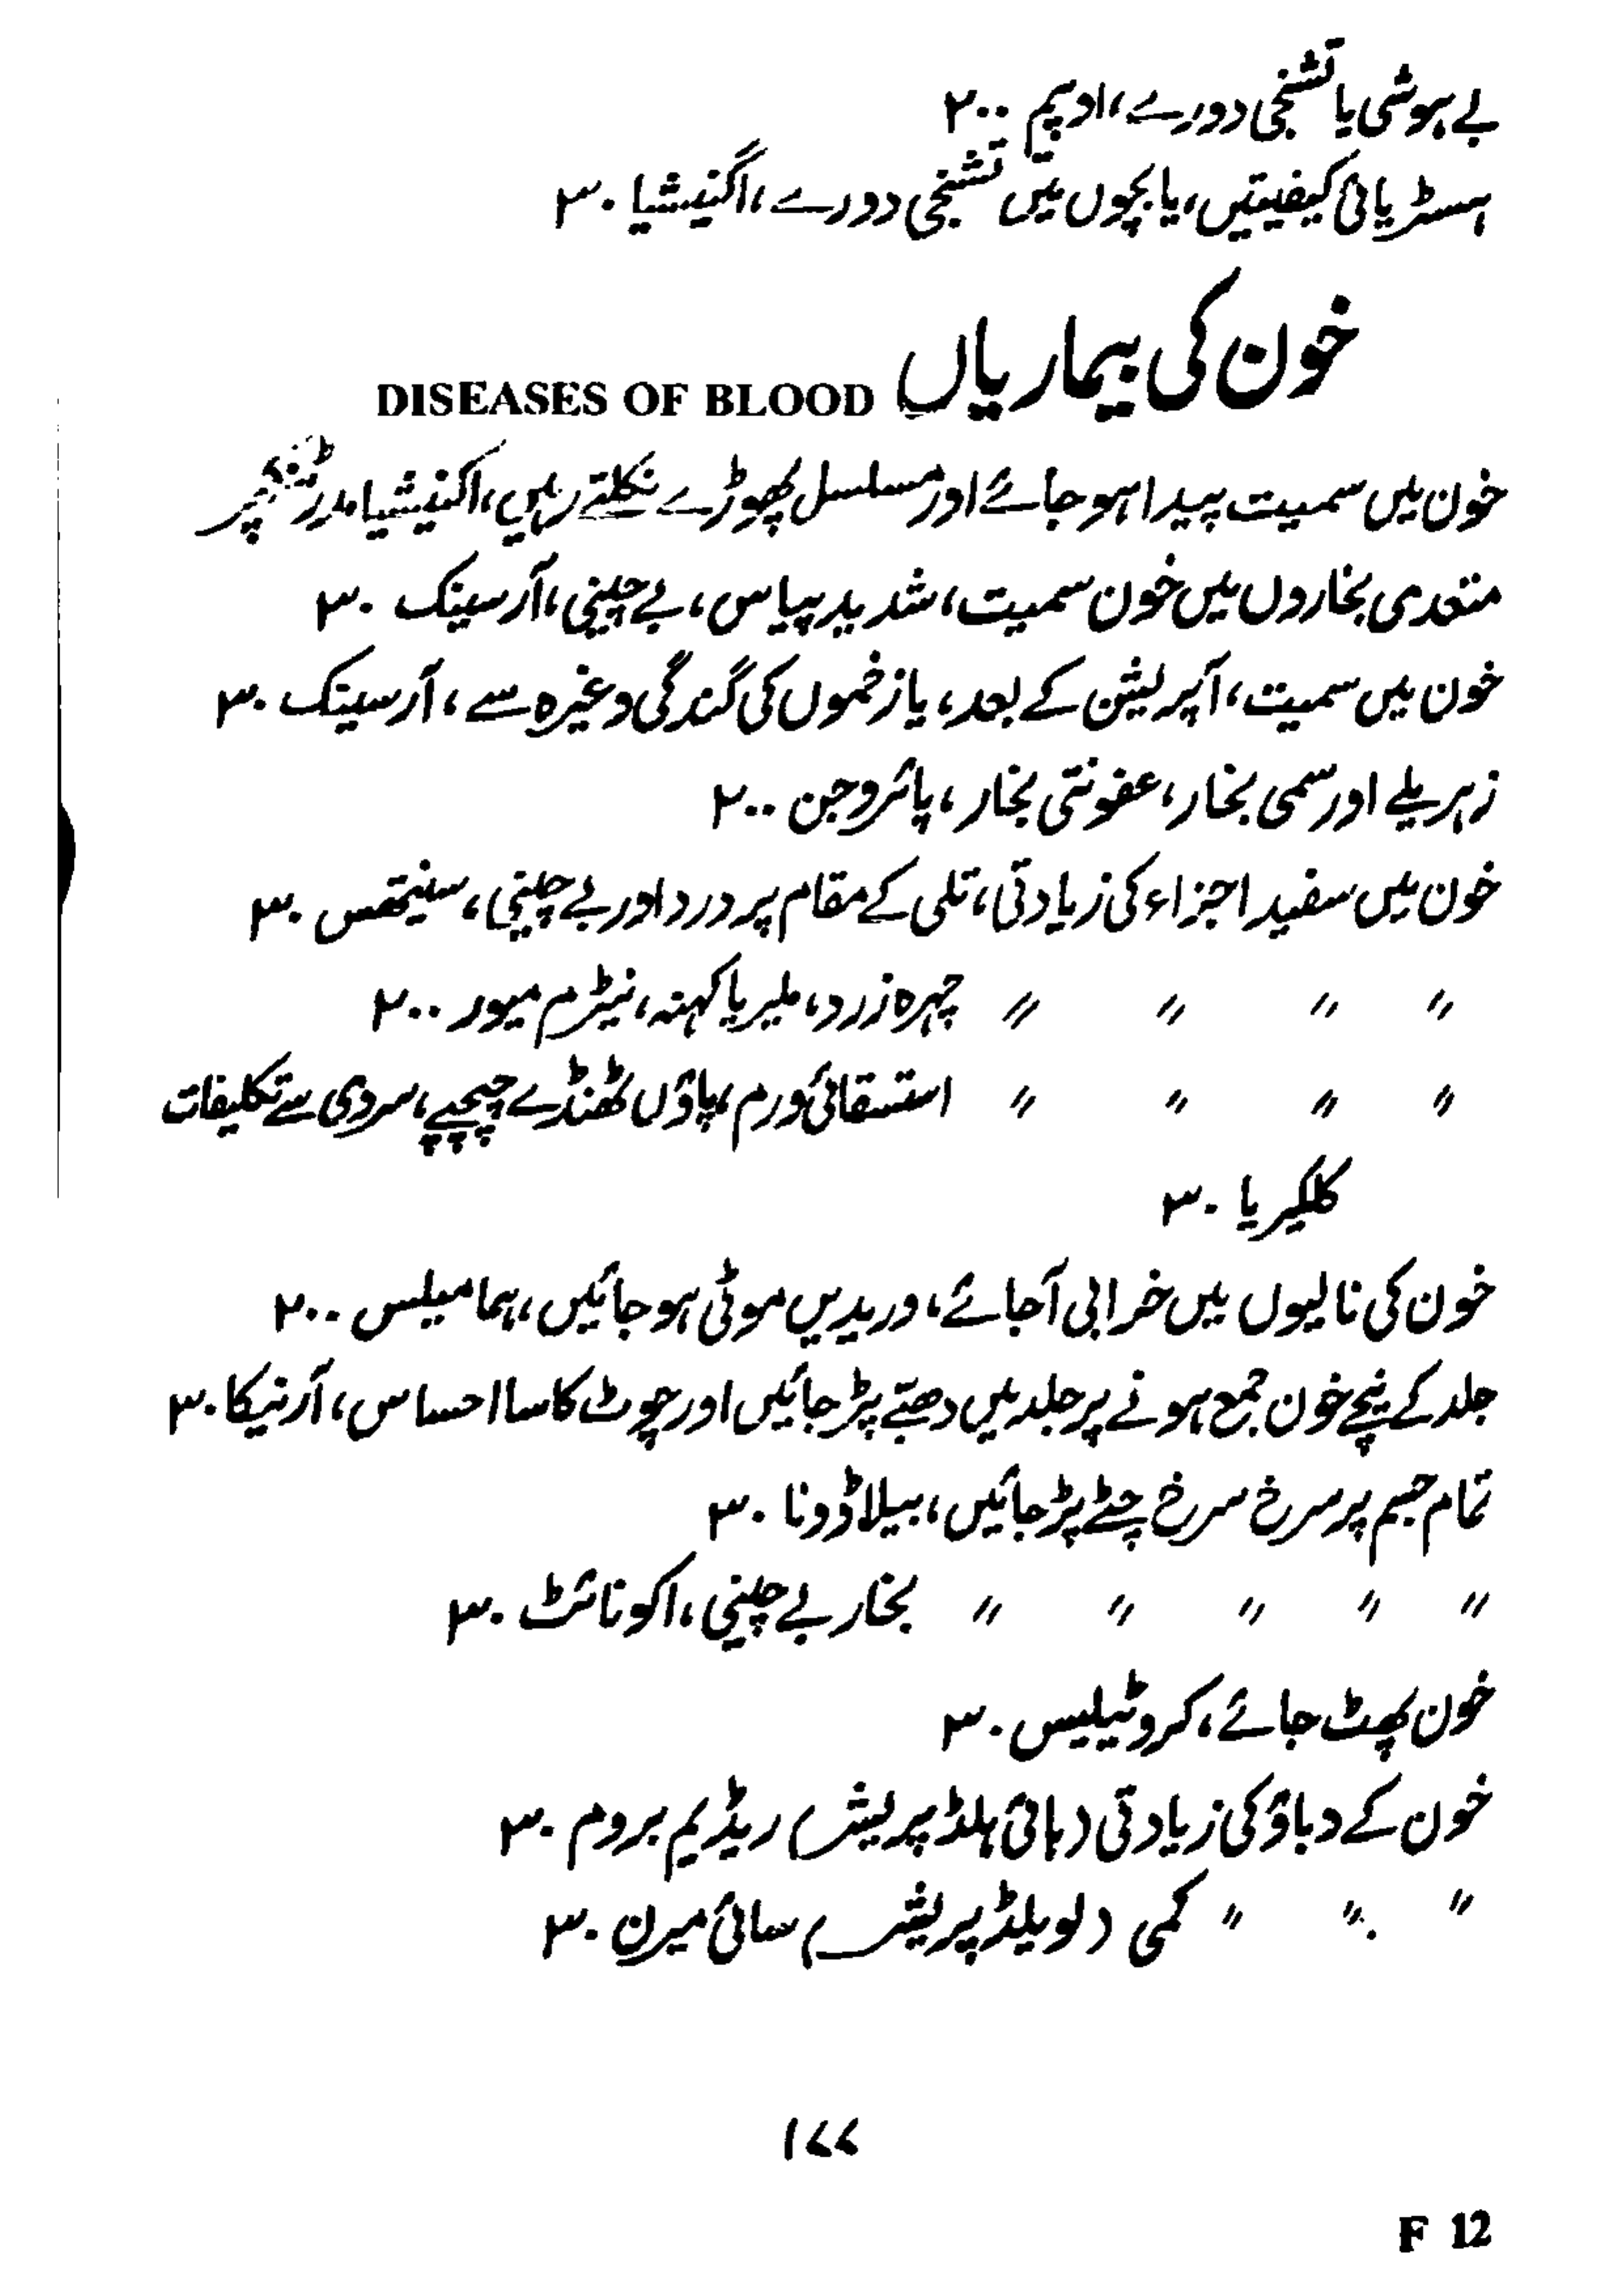 بے ہوشی یا تشنجی دورے، اوپیم ۲۰۰
ہسٹریائی کیفیتیں، یا بچوں میں تشنجی دورے، اگنیشیا ۳۰
خون کی بیماریاں DISEASES OF BLOOD
خون میں سمیت پیدا ہو جائے اور مسلسل پھوڑے نکلتے رہیں، اکنیشیا مدر ٹنکچر
متعدی بخاروں میں خون سمیت، شدید پیاس، بے چینی، آرسینک ۳۰
خون میں سمیت، آپریشن کے بعد، یا زخموں کی گندگی وغیرہ سے، آرسینک ۳۰
زہریلے اور سمی بخار، عفونتی بخار، پائروجن ۲۰۰
خون میں سفید اجزاء کی زیادتی، تلی کے مقام پر درد اور بے چینی، سینتھس ۳۰
〃 〃 〃 〃 چہرہ زرد، ملیریا کہنہ، نیٹرم میور ۲۰۰
〃 〃 〃 〃 استسقائی ورم، پاؤں ٹھنڈے چپچپے، سردی سے تکلیفات
کلکیریا ۳۰
خون کی نالیوں میں خرابی آجائے، وریدیں موٹی ہو جائیں، ہمامیلس ۲۰۰
جلد کے نیچے خون جمع ہونے پر جلد میں دھبے پڑ جائیں اور چوٹ کا سا احساس، آرنیکا ۳۰
تمام جسم پر سرخ سرخ چٹے پڑ جائیں، بیلاڈونا ۳۰
〃 〃 〃 〃 〃 بخار بے چینی، اکونائٹ ۳۰
خون پھٹ جائے، کروٹیلیس ۳۰
خون کے دباؤ کی زیادتی (ہائی بلڈ پریشر) ریڈیم بروم ۳۰
〃 〃 〃 کمی (لو بلڈ پریشر) سائی میرن ۳۰
۱۷۷
F 12